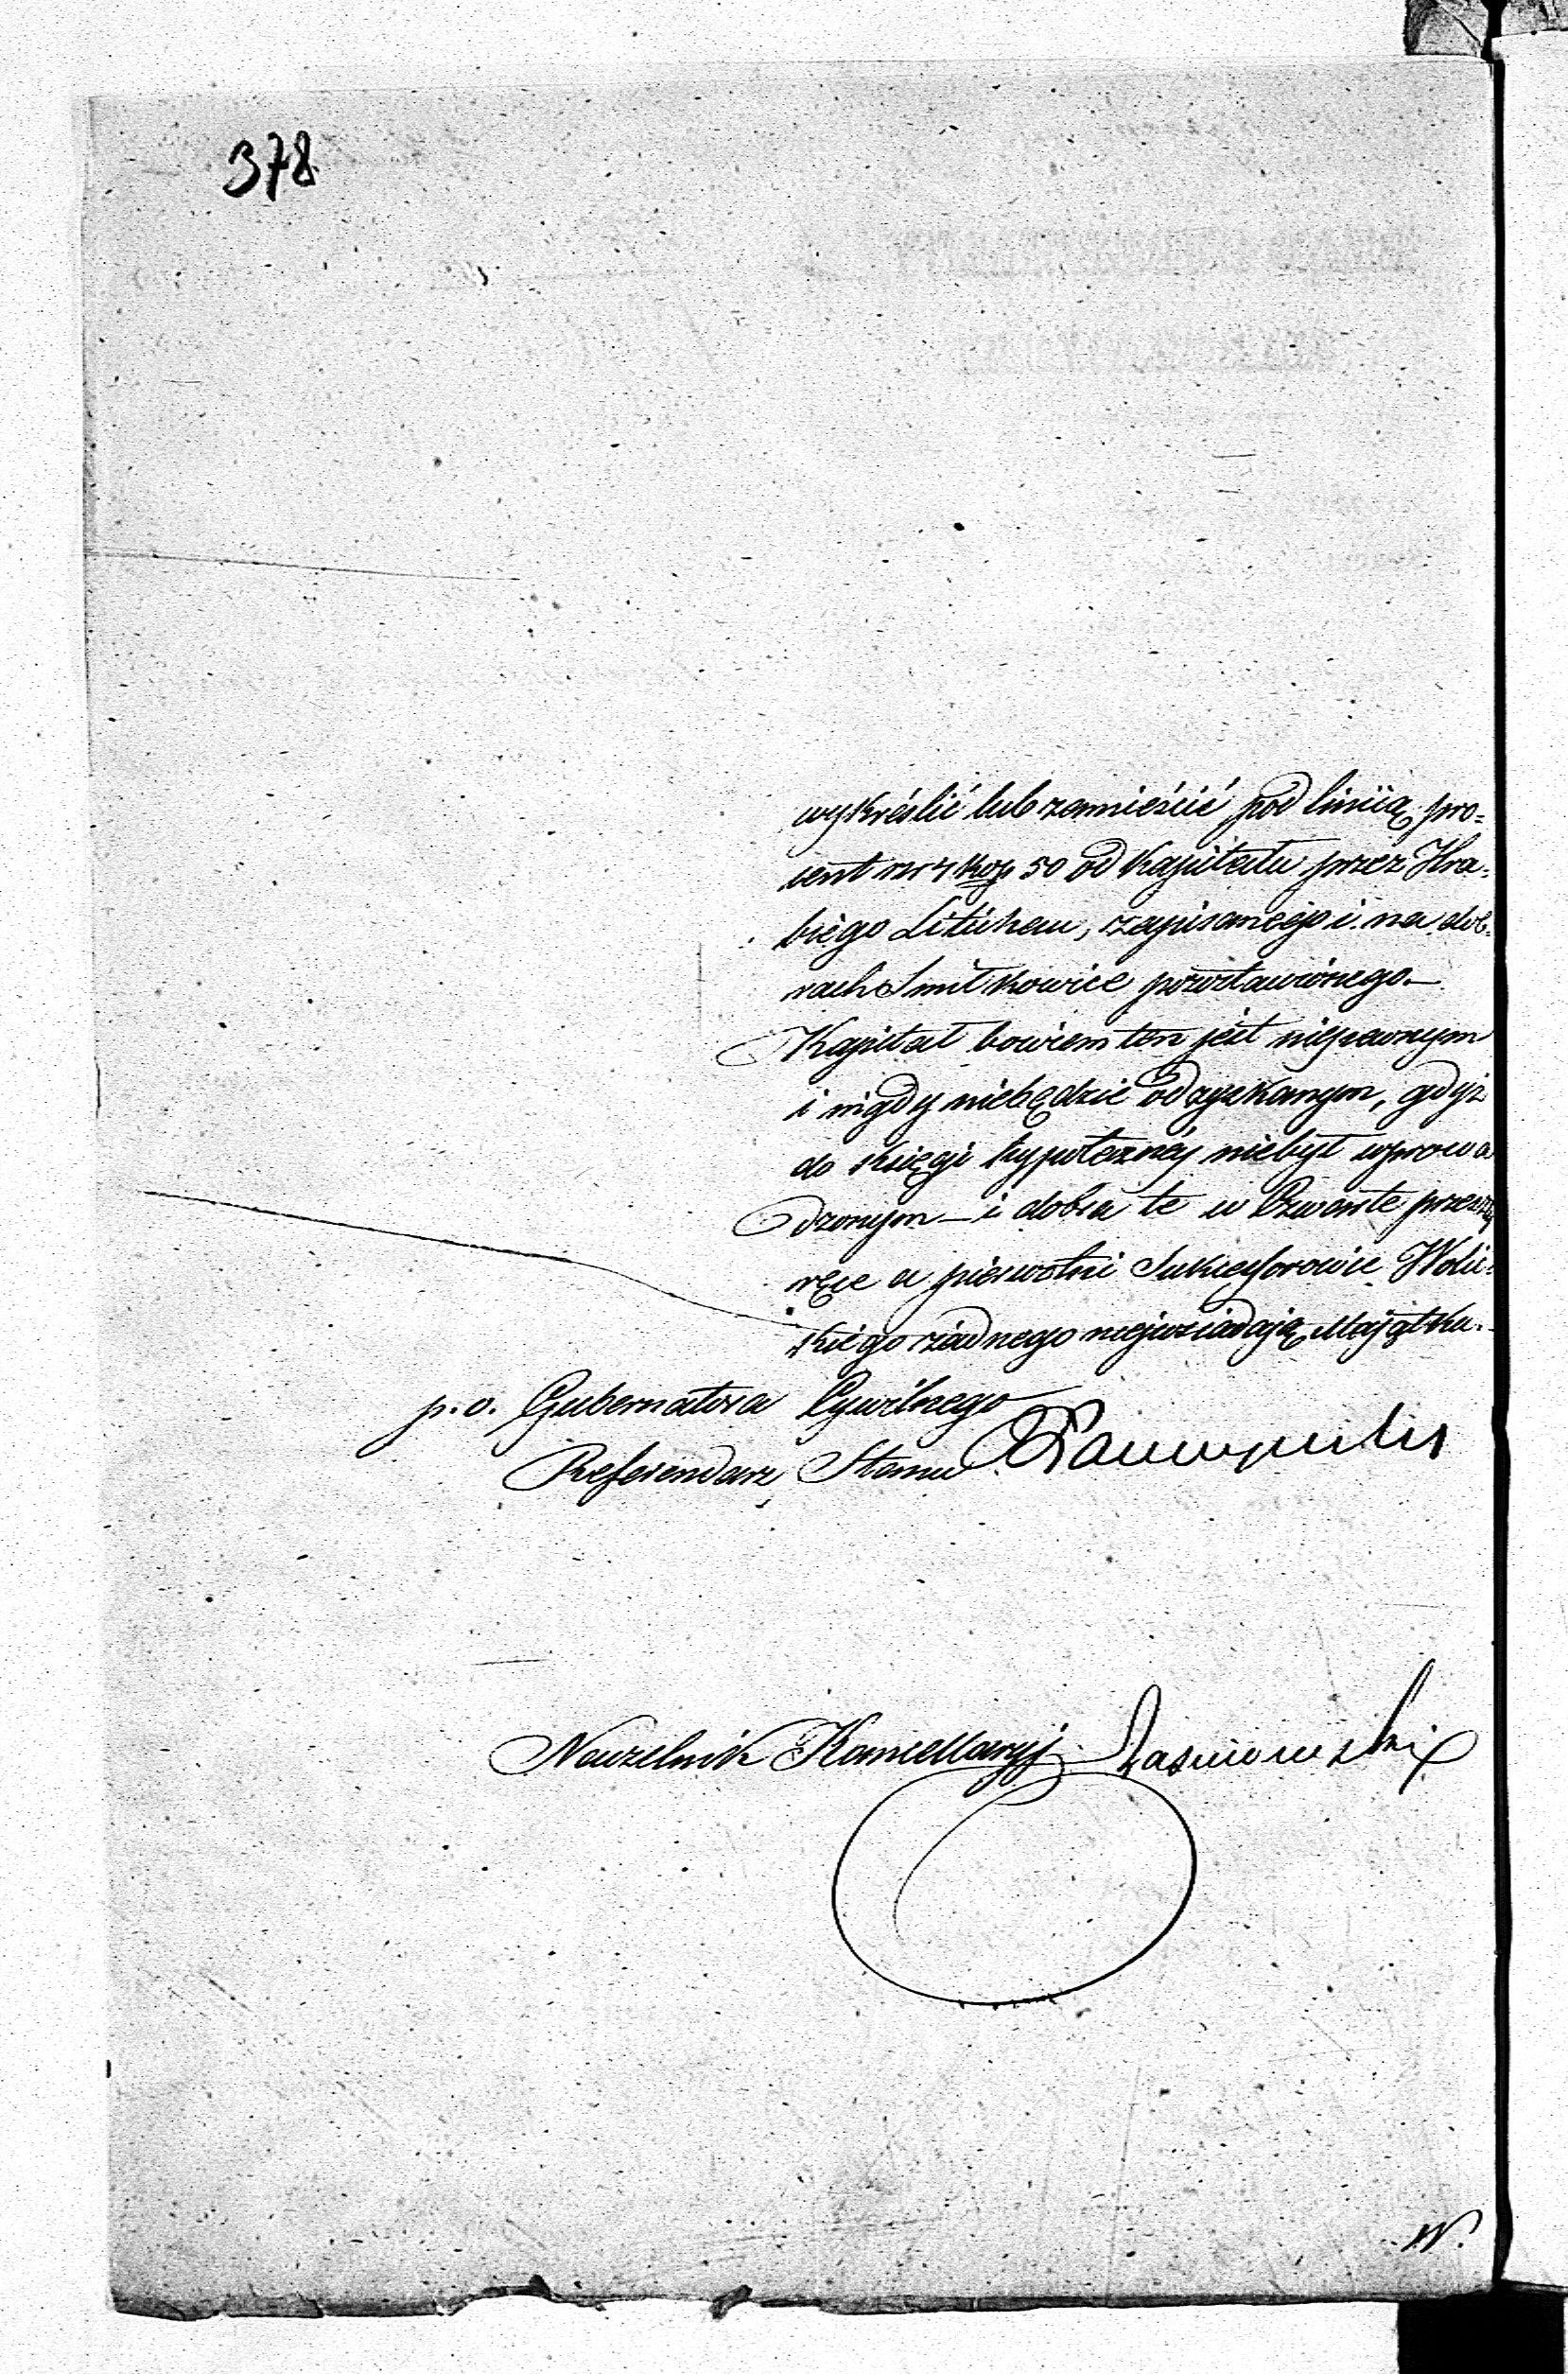 378
wykréslić lub zamieścić pod liniią pro=
cent rsr 4 kop 50 od Kapitału przez Hra=
biego zapisanego i na dob=
rach pozostawionego.—
Kapitał bowiem ten jest niepewnym
i nigdy niebędzie odzyskanym, gdyż
do księgi hypotecznéj niebył wprowa
dzonym — i dobra te w czwarte przeszły
ręce a pierwotni Sukcessorowie Wolic=
kiego żadnego nieposiadają Majątku.—
p. o. Gubernatora Cywilnego
Referendarz Stanu
Naczelnik Kancellaryj
W.